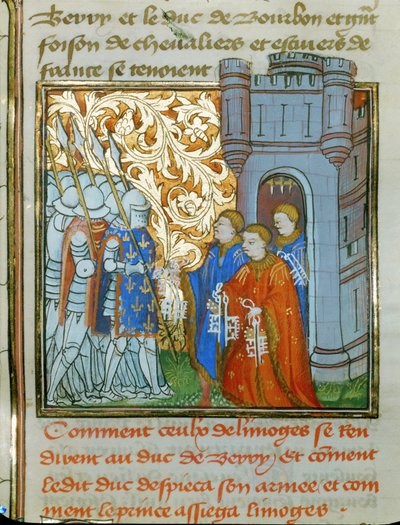 Berry et le duc de Bourbon et grant
foison de chevaliers et escuiers de
france se tenoient
Comment ceulx de limoges se ren
dirent au duc de Berry Et coment
ledit duc despieca son armee et com
ment le prince assiega limoges